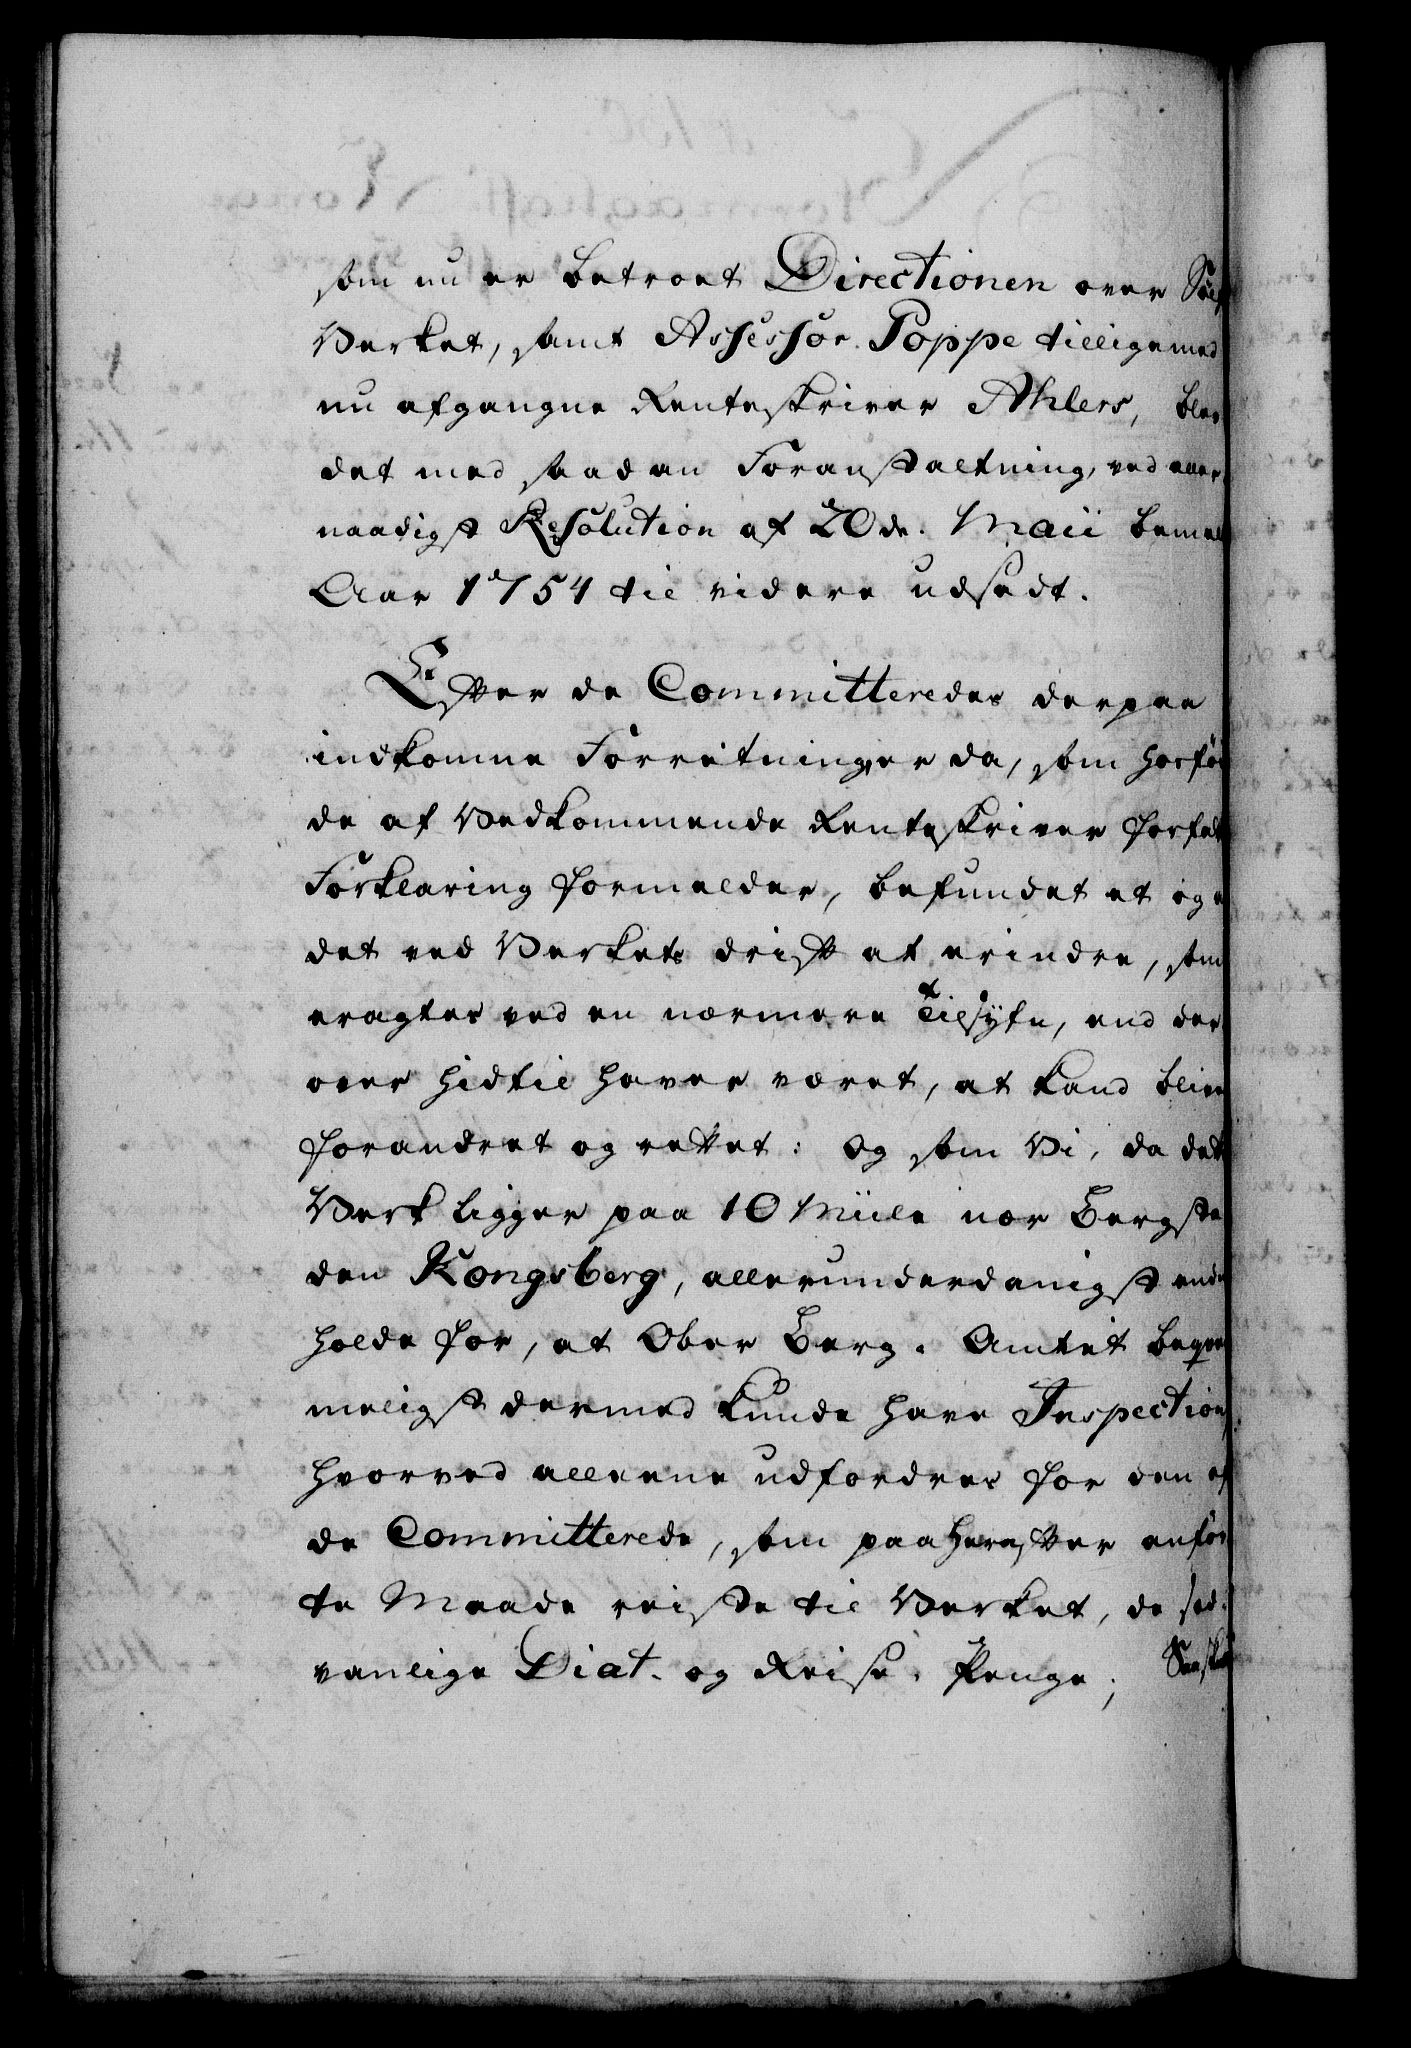 som nu er betroet Directionen over Sölf
Verket, samt Assessor Poppe tilligemed
nu afgangne Renteskriver Ahlers, blev
det med saadan Foranstaltning, ved aller
naadigst Resolution af 20de. Maii bemel
Aar 1754 til videre udsadt.
Efter de Committeredes derpaa
indkomne Forretninger da, som hosföi
de af Vedkommende Renteskriver forfat
Forklaring formelder, befundet et og a
det ved Verkets drift at erindre, som
eragtes ved en nærmere Tilsyfn, end der
over hidtil haver været, at kand blive
forandret og rettet: og som Vi, da dette
Verk ligger paa 10 Miile nær Bergsta
den Kongsberg, allerunderdanigst ende
holde for, at Ober Berg. Amtet beqve
meligst dermed kunde have Inspection,
hvorved alleene udfordres for den af
de Committerede, som paa herefter anför
te Maade reiste til Verket, de sed.
vanlige Diat. og Reise. Penge;